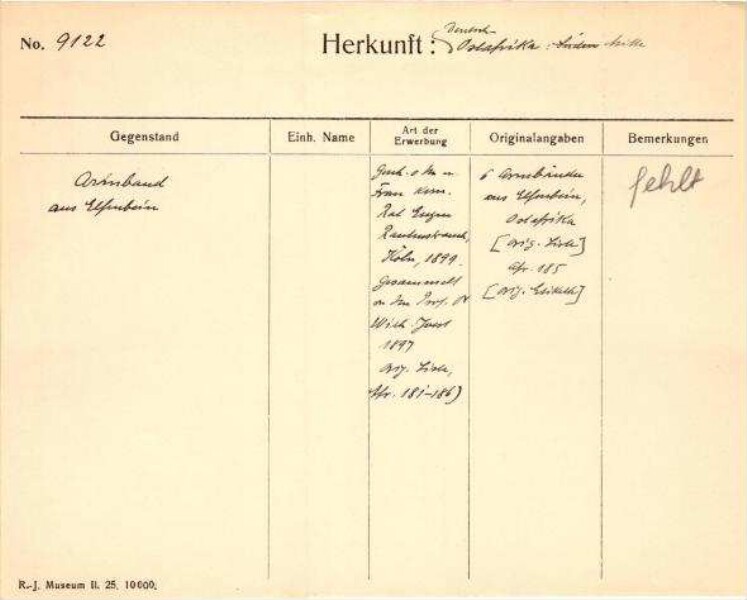 No. 9122
Herkunft: Deutsch-
Ostafrika:
Gegenstand
Einh. Name
Art der
Erwerbung
Originalangaben
Bemerkungen
Armband
aus Elfenbein
Gesch. v.
Frau Kom.
Rat Eugen
Rautenstrauch,
Köln, 1899.
Gesammelt
Prof. Dr
Wilh. Joest
1897
Orig. Liste,
Afr. 181-186)
6 Armbänder
aus Elfenbein,
Ostafrika
[Orig. Liste]
Afr. 185
[Orig. Etikett]
fehlt
R.-J. Museum II. 25. 10000.